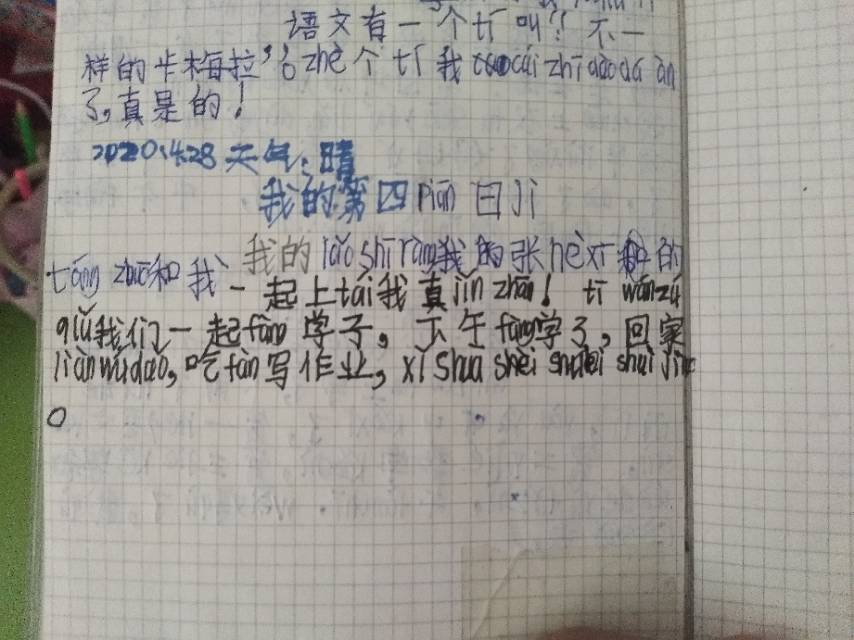 语文有一个tí叫？不一
样的卡梅拉，zhè个tí我cái zhī dào dá àn
了，真是的！
2020.4.28 天气：晴
我的第四piān日jì
我的lǎo shī ràng我的张hè xī和的
táng zhuō和我
一起上tái我真jǐn zhāng! tī wán zú
qiú我们一起fàng学了，下午fàng学了，回家
liàn wǔ dǎo，吃fàn写作业，xǐ shuā shuì
。